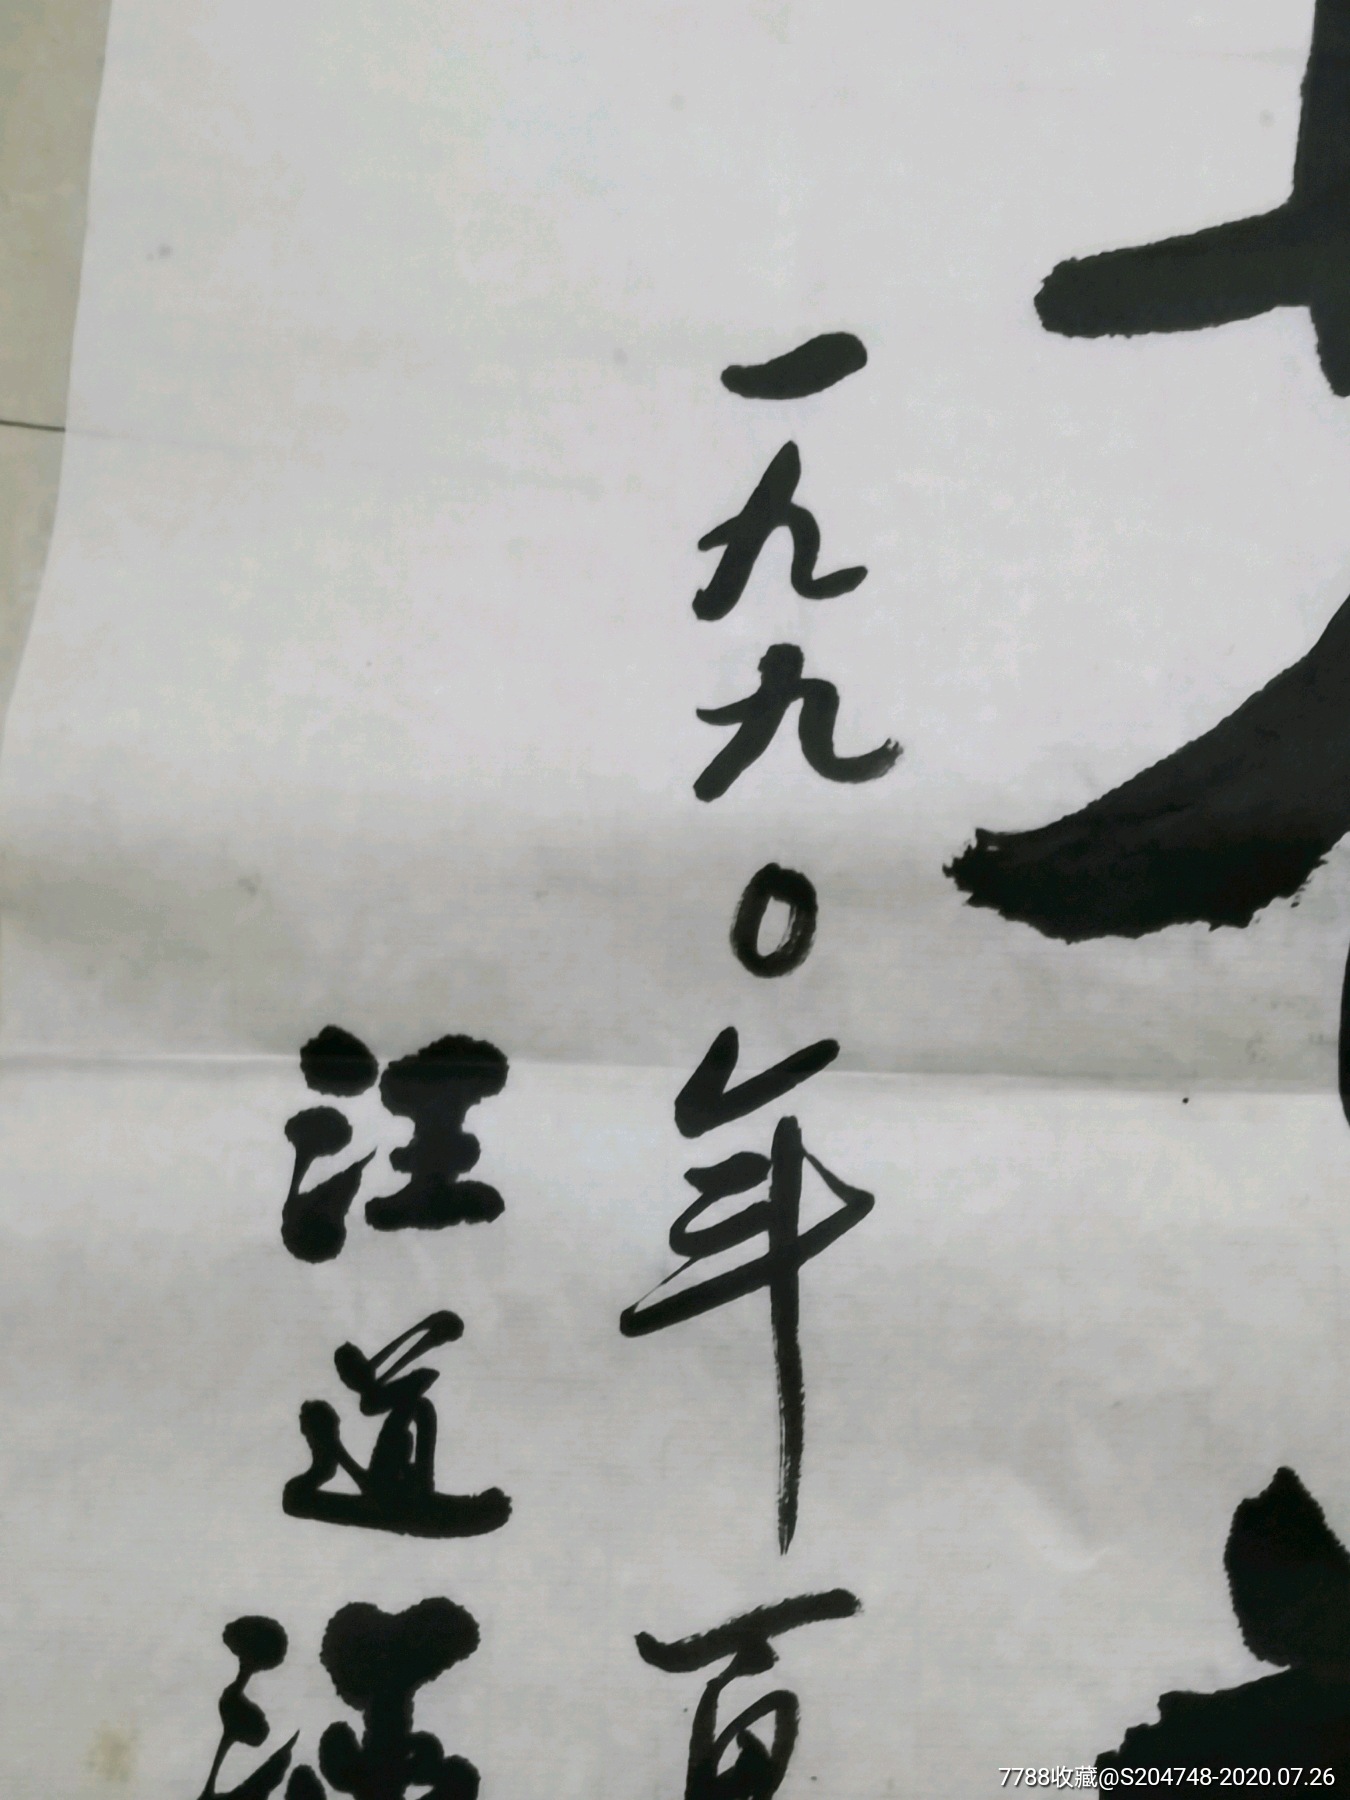 一九九〇年百
汪道涵
7788收藏@S204748-2020.07.26